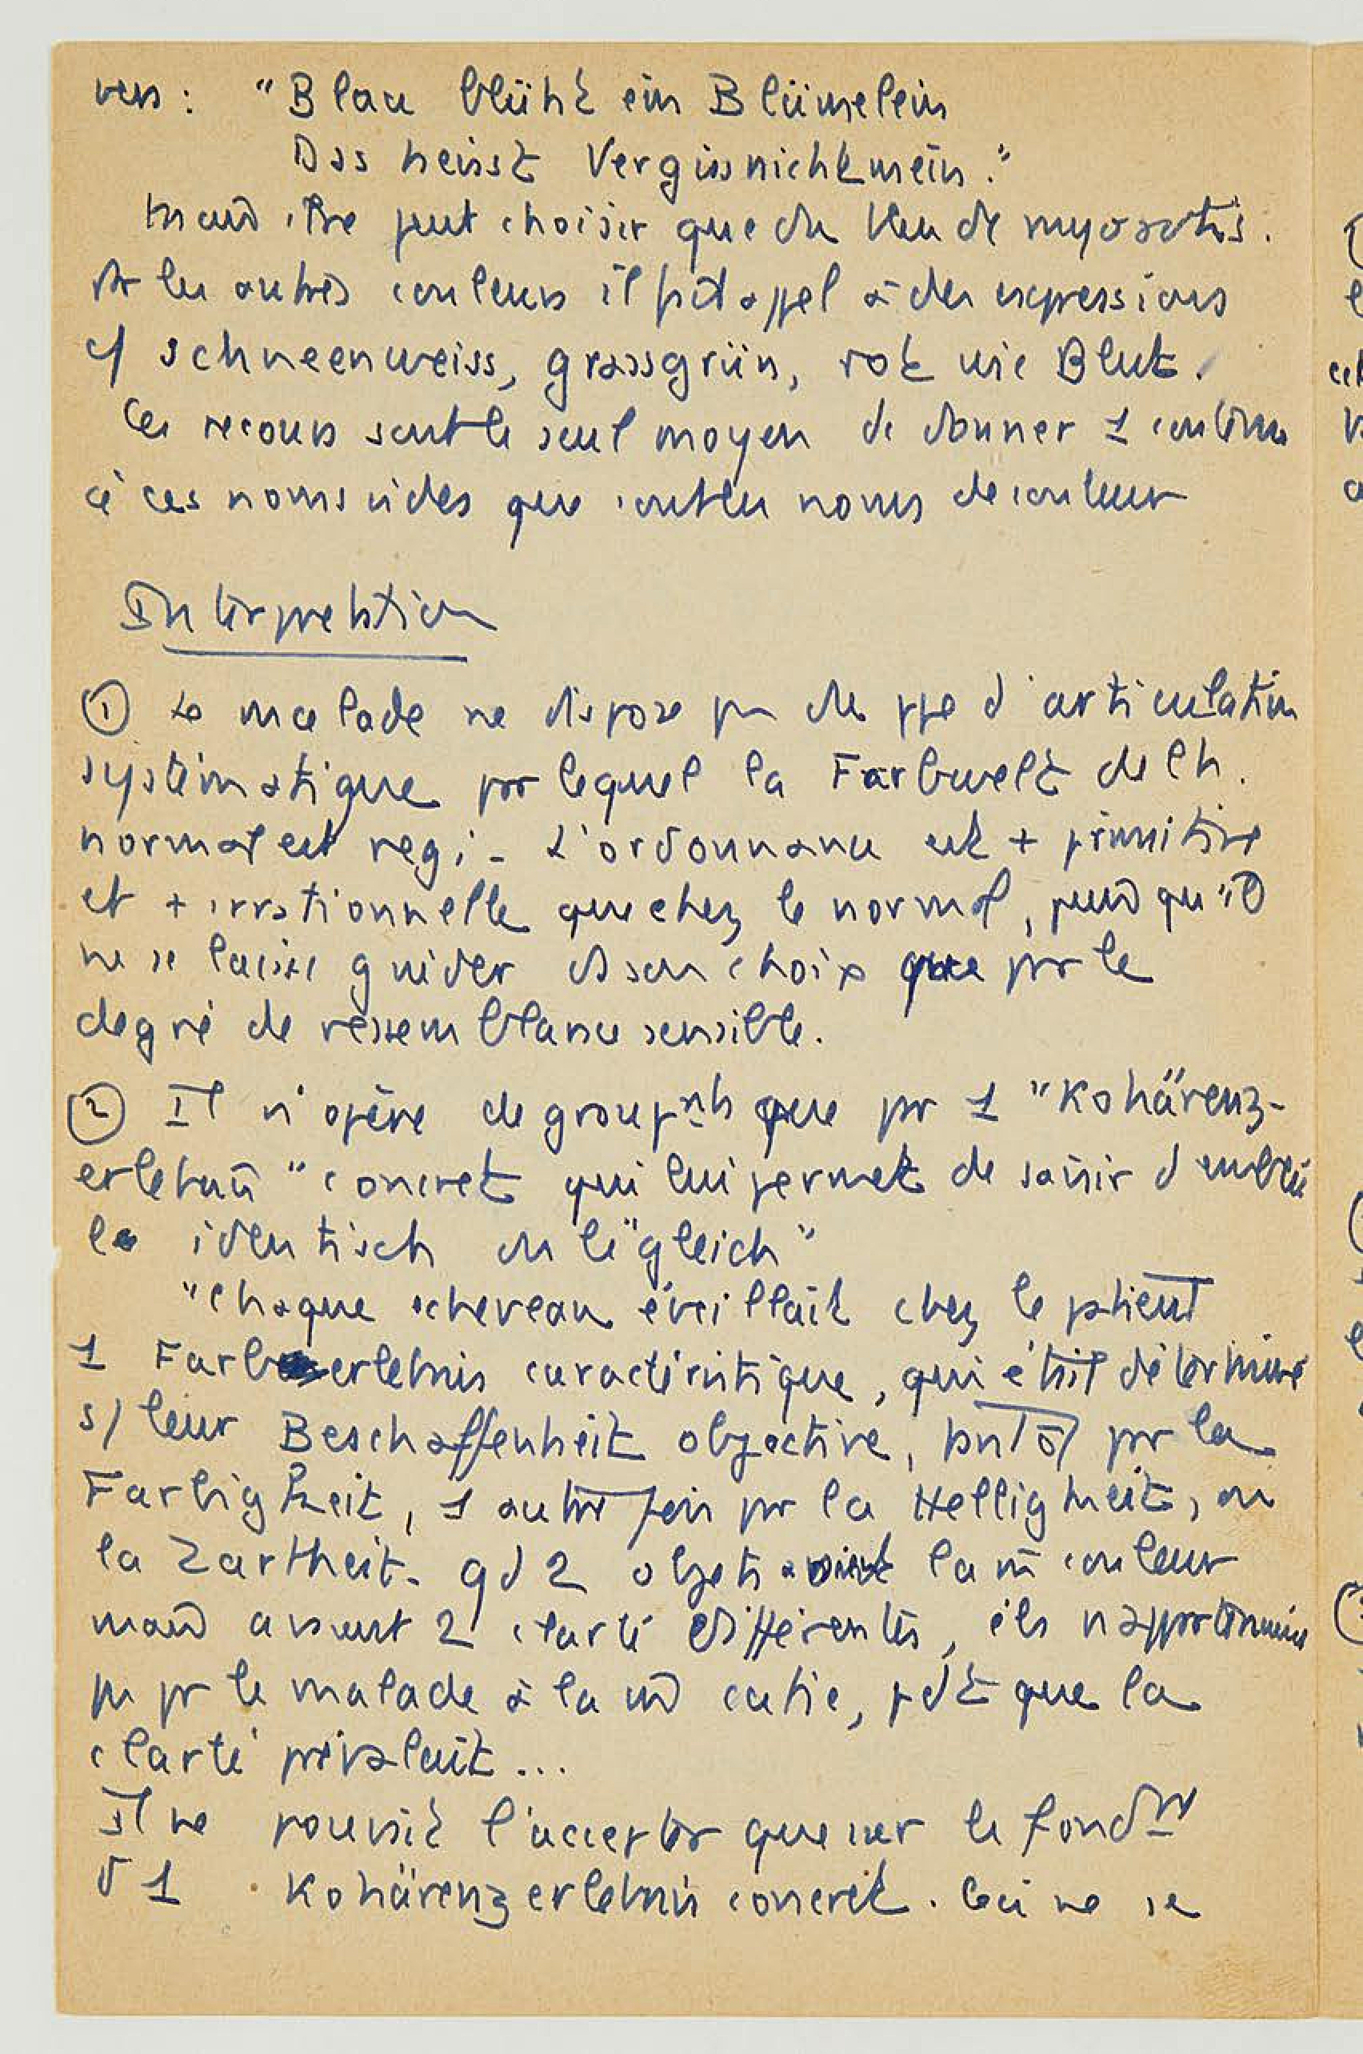 vers : "Blau blüht ein Blümelein
Das heisst Vergissnichtmein."
mais il ne peut choisir que du bleu de myosotis.
les autres couleurs il fait appel à des expressions
cf schneenweiss, grassgrün, rot wie Blut.
Ces recours sont le seul moyen de donner 1 contenu
à ces noms vides que sont les noms de couleur
Interpretation
① Le malade ne dispose pas du ppe d'articulation
systématique par lequel la Farbwelt de l'h.
normal est regi. L'ordonnance est + primitive
et + irrationnelle que chez le normal, puisqu'il
ne se laisse guider ds son choix que par le
degré de ressemblance sensible.
② Il n'opère de groupmts que par 1 "Kohärenz-
erlebnis" concret qui lui permet de saisir d'emblée
le identisch ou le "gleich"
"chaque echeveau éveillait chez le patient
1 Farberlebnis caractéristique, qui était déterminé
s/ leur Beschaffenheit objective, tantôt par la
Farbigkeit, 1 autre fois par la Helligkeit, ou
la Zartheit. qd 2 objets avaient la m̄ couleur
mais avaient 2 clarté différentes, ils n'appartenaient
pas pr le malade à la m̄ catie, pdt que la
clarté prévalait...
Il ne pouvait l'accepter que sur le fondmt
d 1 Kohärenzerlebnis concret. Ceci ne se